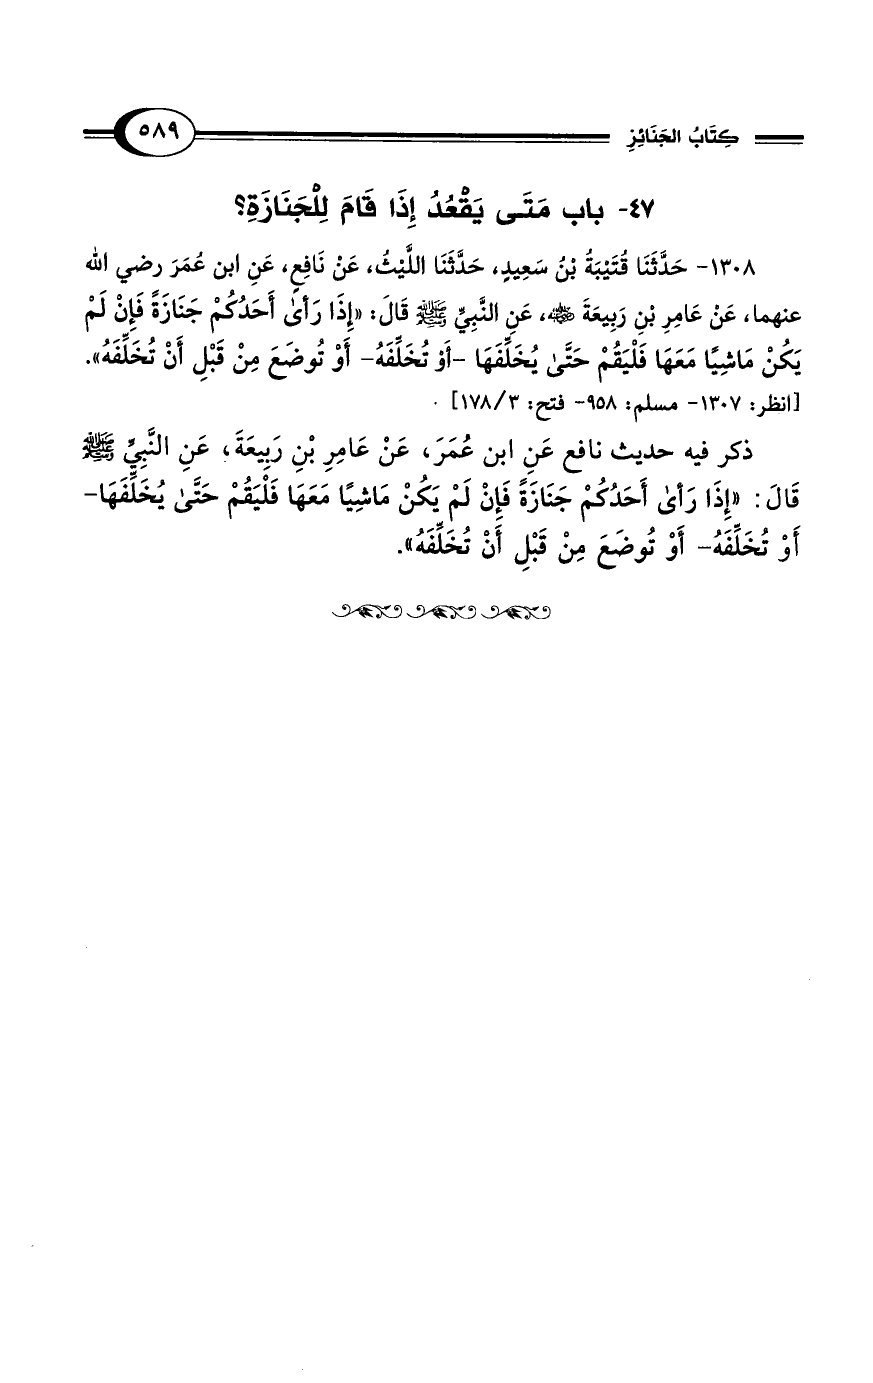 كِتَابُ الجَنَائِزِ ٥٨٩
٤٧- باب مَتَى يَقْعُدُ إِذَا قَامَ لِلْجَنَازَةِ؟
١٣٠٨- حَدَّثَنَا قُتَيْبَةُ بْنُ سَعِيدٍ، حَدَّثَنَا اللَّيْثُ، عَنْ نَافِعٍ، عَنِ ابن عُمَرَ رضي الله
عنهما، عَنْ عَامِرِ بْنِ رَبِيعَةَ ﵁، عَنِ النَّبِيِّ ﷺ قَالَ: «إِذَا رَأىٰ أَحَدُكُمْ جَنَازَةً فَإِنْ لَمْ
يَكُنْ مَاشِيًا مَعَهَا فَلْيَقُمْ حَتَّىٰ يُخَلِّفَهَا -أَوْ تُخَلِّفَهُ- أَوْ تُوضَعَ مِنْ قَبْلِ أَنْ تُخَلِّفَهُ».
[انظر: ١٣٠٧- مسلم: ٩٥٨- فتح: ٣/ ١٧٨]
ذكر فيه حديث نافع عَنِ ابن عُمَرَ، عَنْ عَامِرِ بْنِ رَبِيعَةَ، عَنِ النَّبِيِّ ﷺ
قَالَ: «إِذَا رَأىٰ أَحَدُكُمْ جَنَازَةً فَإِنْ لَمْ يَكُنْ مَاشِيًا مَعَهَا فَلْيَقُمْ حَتَّىٰ يُخَلِّفَهَا-
أَوْ تُخَلِّفَهُ- أَوْ تُوضَعَ مِنْ قَبْلِ أَنْ تُخَلِّفَهُ».